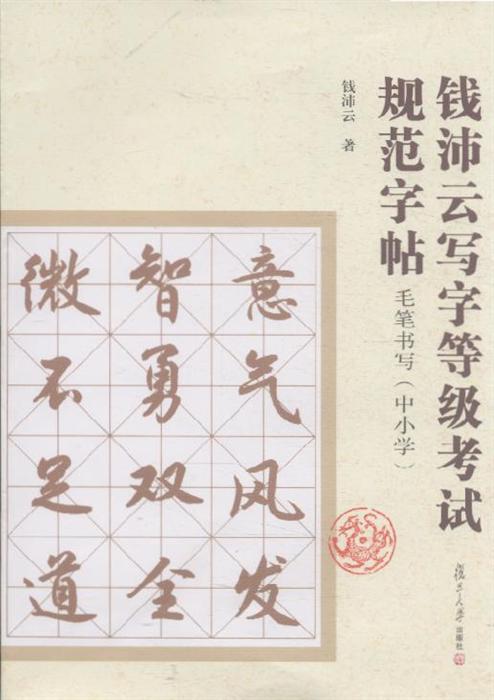 钱沛云写字等级考试
规范字帖
毛笔书写（中小学）
钱沛云 著
意气风发
智勇双全
微不足道
復旦大学出版社